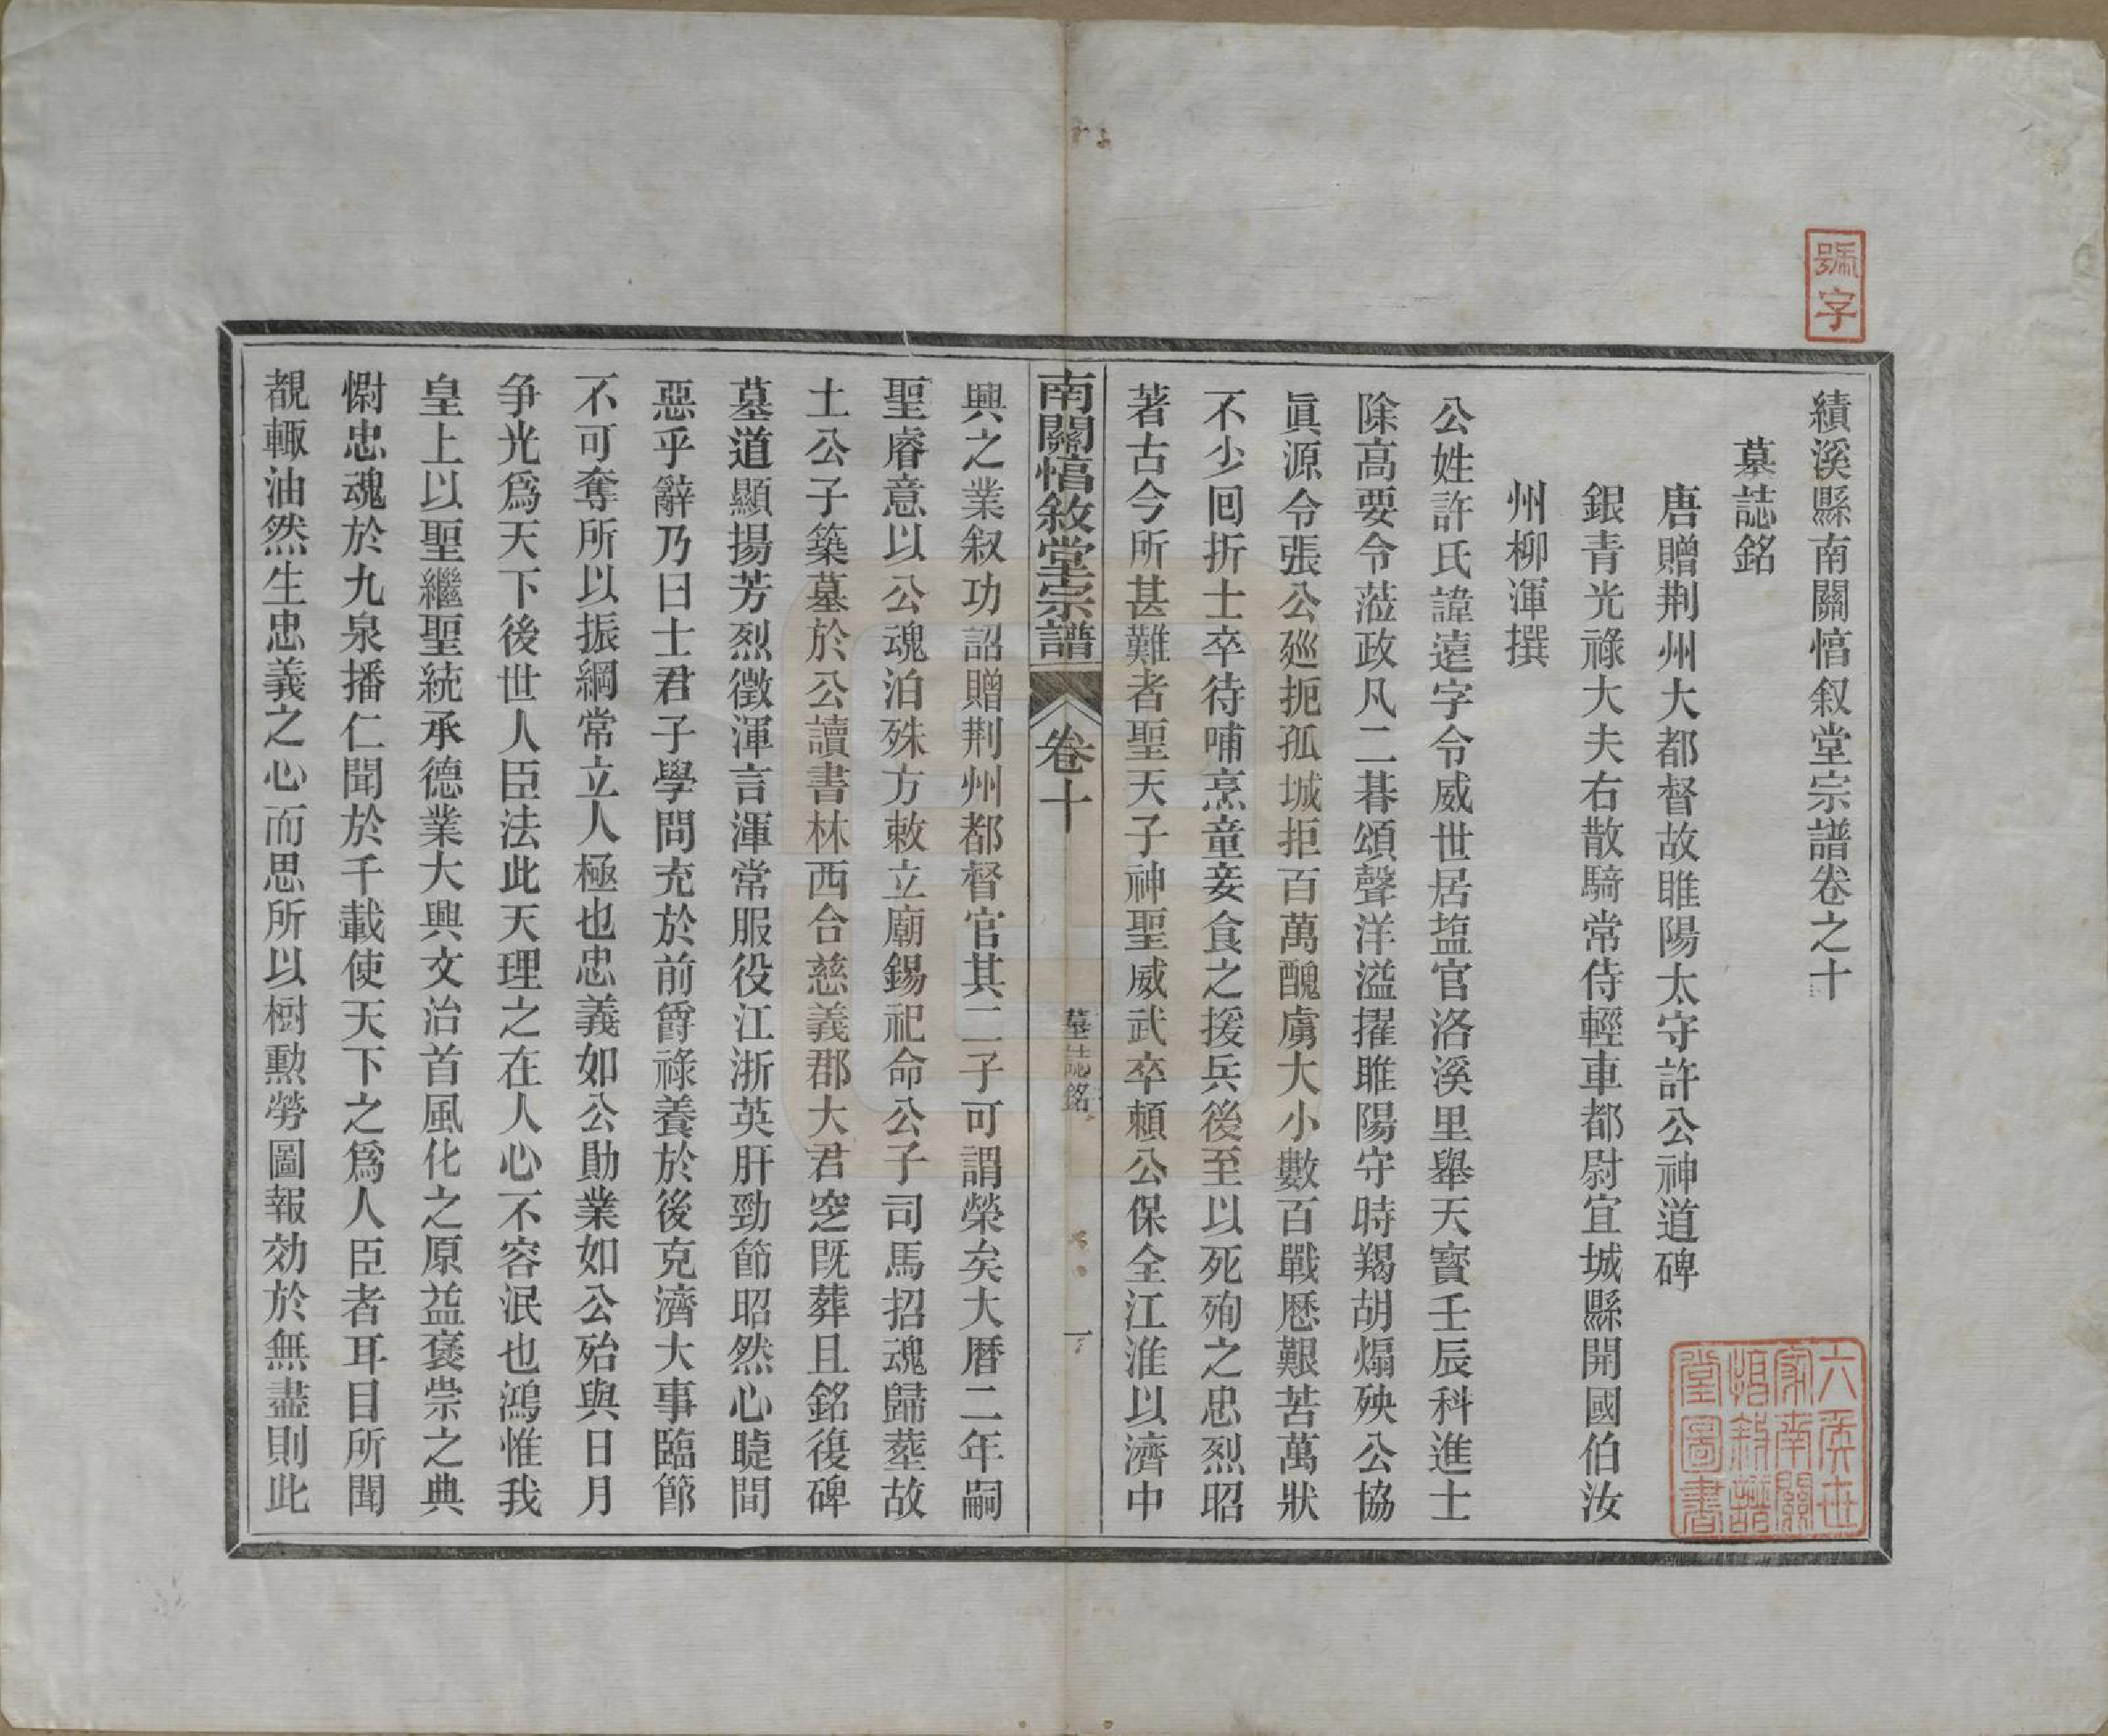 號字
績溪縣南關惇叙堂宗譜卷之十
墓誌銘
唐贈荆州大都督故睢陽太守許公神道碑
銀青光祿大夫右散騎常侍輕車都尉宜城縣開國伯汝
州柳渾撰
公姓許氏諱遠字令威世居塩官洛溪里舉天寳壬辰科進士
除高要令蒞政凡二碁頌聲洋溢擢睢陽守時羯胡煽殃公協
眞源令張公廵扼孤城拒百萬醜虜大小數百戰歷艱苦萬狀
不少回折士卒待哺烹童妾食之援兵後至以死殉之忠烈昭
著古今所甚難者聖天子神聖威武卒頼公保全江淮以濟中
南關惇敘堂宗譜
卷十
墓誌銘
一
興之業叙功詔贈荆州都督官其二子可謂榮矣大曆二年嗣
聖睿意以公魂泊殊方敕立廟錫祀命公子司馬招魂歸塟故
土公子築墓於公讀書林西台慈義郡大君窆既葬且銘復碑
墓道顯揚芳烈徵渾言渾常服役江浙英肝勁節昭然心睫間
惡乎辭乃曰士君子學問充於前爵祿養於後克濟大事臨節
不可奪所以振綱常立人極也忠義如公勛業如公殆與日月
争光爲天下後世人臣法此天理之在人心不容泯也鴻惟我
皇上以聖繼聖統承德業大興文治首風化之原益褒崇之典
慰忠魂於九泉播仁聞於千載使天下之爲人臣者耳目所聞
覩輙油然生忠義之心而思所以樹勲勞圖報効於無盡則此